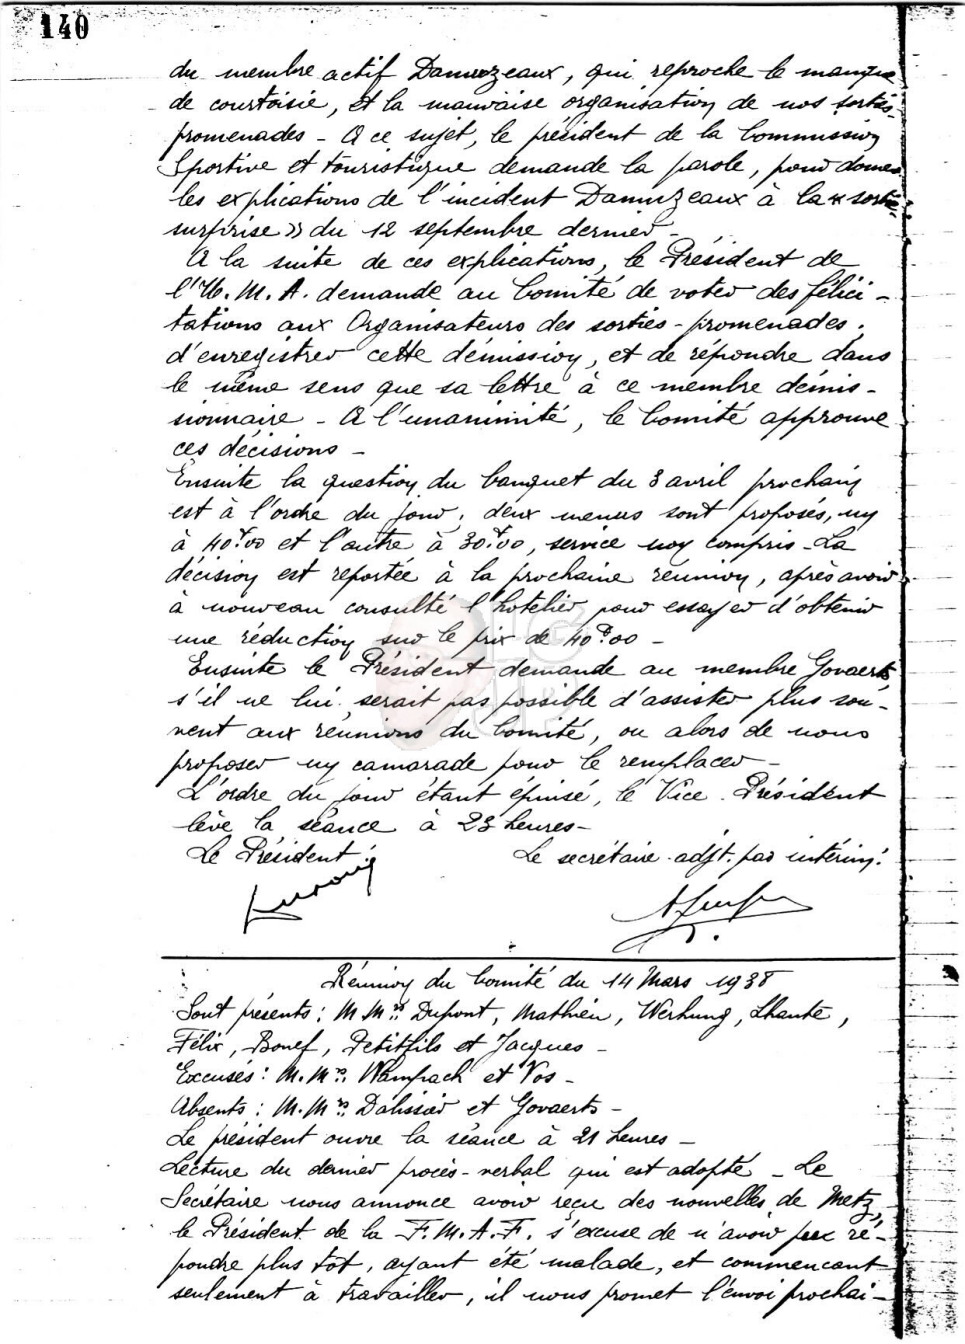 140
du membre actif Damuzeaux, qui reproche le manque
de courtoisie, et la mauvaise organisation de nos sorties-
promenades - A ce sujet, le président de la Commission
Sportive et touristique demande la parole, pour donner
les explications de l'incident Damuzeaux à la « sortie-
surprise » du 12 septembre dernier -
A la suite de ces explications, le Président de
l'U.M.A. demande au Comité de voter des félici-
tations aux Organisateurs des sorties-promenades,
d'enregistrer cette démission, et de répondre dans
le même sens que sa lettre à ce membre démis-
sionnaire - A l'unanimité, le Comité approuve
ces décisions -
Ensuite la question du banquet du 3 avril prochain
est à l'ordre du jour, deux menus sont proposés, un
à 40f00 et l'autre à 30f00, service non compris - La
décision est reportée à la prochaine réunion, après avoir
à nouveau consulté l'hotelier pour essayer d'obtenir
une réduction sur le prix de 40f00 -
Ensuite le Président demande au membre Govaerts,
s'il ne lui serait pas possible d'assister plus sou-
vent aux réunions du Comité, ou alors de nous
proposer un camarade pour le remplacer -
L'ordre du jour étant épuisé, le Vice-Président
lève la séance à 23 heures -
Le Président : Le secrétaire-adjt. par intérim :
Réunion du Comité du 14 Mars 1938
Sont présents : M.Mrs Dupont, Mathieu, Werhung, Lhante,
Félix, Bonef, Petitfils et Jacques -
Excusés : M.Mrs. Wampach et Vos -
Absents : M.Mrs. Dalissier et Govaerts -
Le président ouvre la séance à 21 heures -
Lecture du dernier procès-verbal qui est adopté - Le
Secrétaire nous annonce avoir reçu des nouvelles de Metz,
le Président de la F.M.A.F. s'excuse de n'avoir pu ré-
pondre plus tôt, ayant été malade, et commencant
seulement à travailler, il nous promet l'envoi prochai-